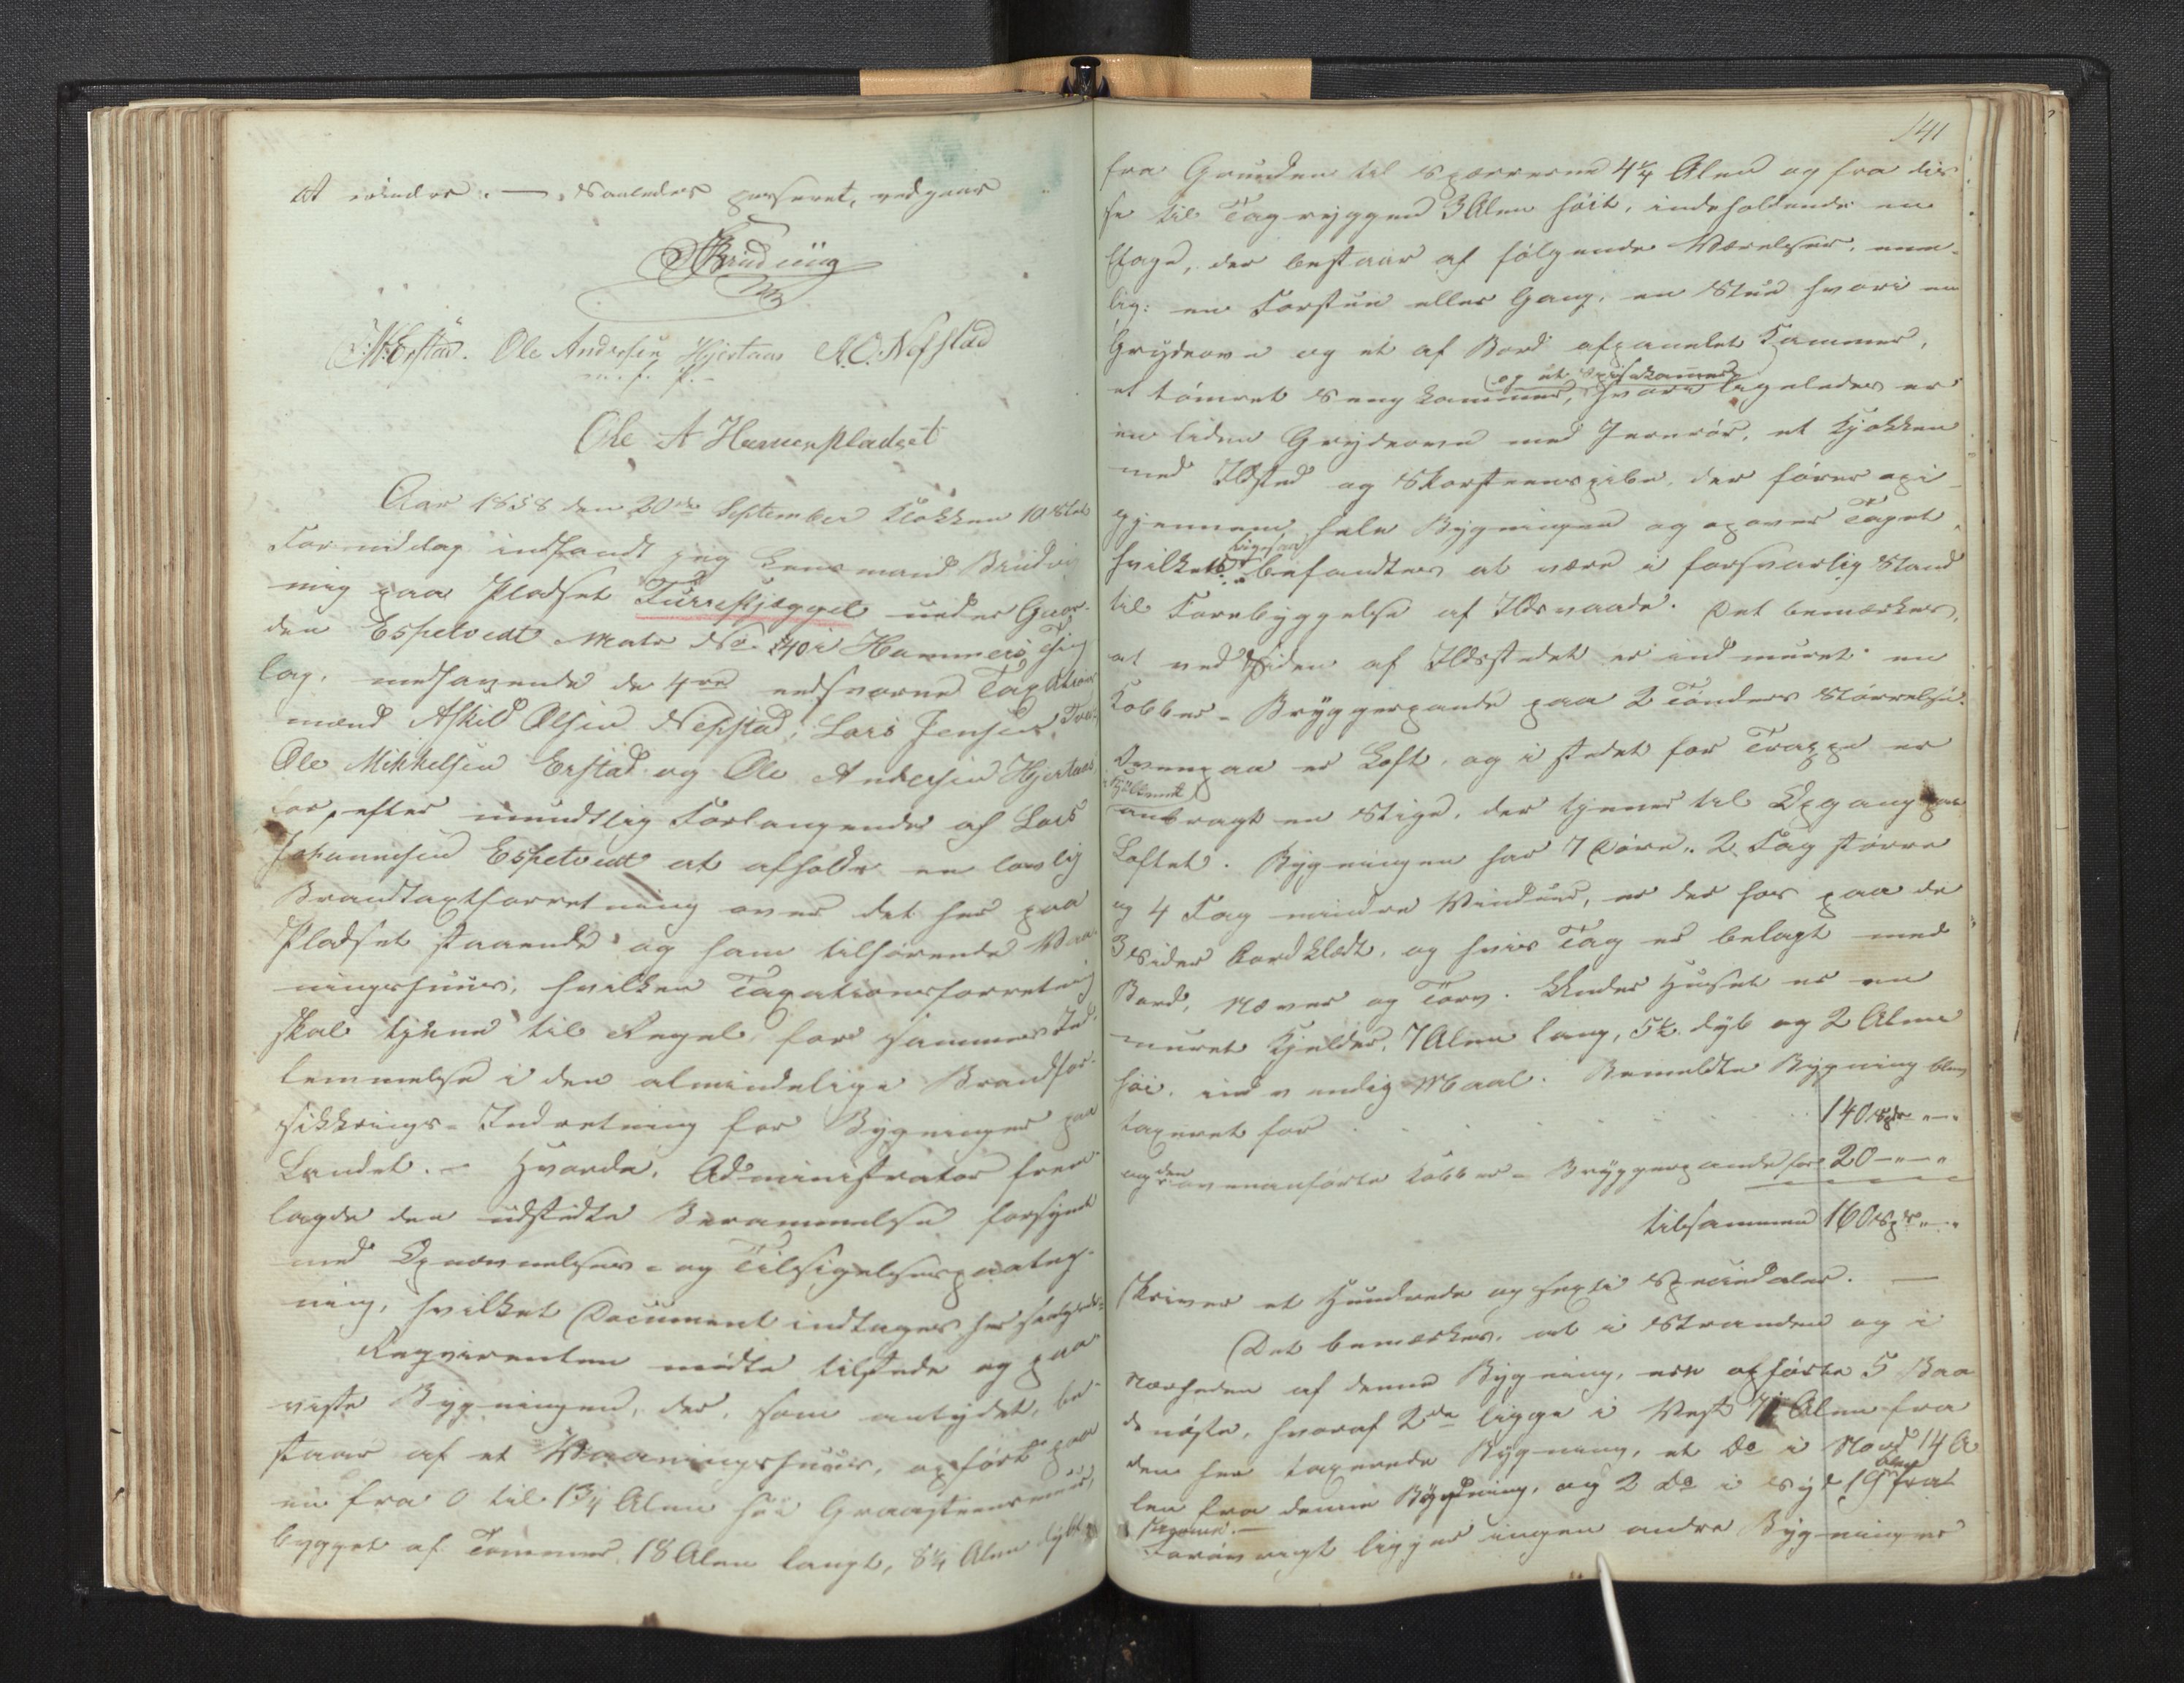 at erindre. — Saaledes passeret, vedgaar
Brudvig
M. Erstad. Ole Andersen Hjertaas A. O. Nepstad
m. f. P.
Ole A Hammerpladset
Aar 1858 den 20de September Klokken 10 Slet
Formiddag indfandt jeg Lensmand Brudvig
mig paa Pladset Turreskjægget under Gaar-
den Espetvedt Matr No 240 i Hammers Thing
lag, medhavende de 4re eedsvorne Taxations
mænd Askild Olsen Nepstad, Lars Jensen
Ole Mikkelsen Erstad og Ole Andersen Hjertaas
for, efter mundtlig Forlangende af Lars
Johannesen Espetvedt at afholde en lovlig
Brandtaxtforretning over det her paa
Pladset staaende og ham tilhørende Vaa-
ningshuus, hvilken Taxationsforretning
skal tjene til Regel for sammes Ind-
lemmelse i den almindelige Brandfor-
sikkrings-Indretning for Bygninger paa
Landet. – Hvorda, Administrator frem-
lagde den udstedte Berammelse forsynet
med Opnævnelses- og Tilsigelsespaateg-
ning, hvilket Document indtages her
Reqvirenten mødte tilstede og paa-
viste Bygningen, der, som antydet, be-
staar af et Vaaningshuus, opført paa
en fra 0 til 1¾ Alen høi Graasteensmuur,
bygget af Tømmer, 18 Alen langt, 8¼ Alen dybt
141
fra Grunden til Sparrerne 4¼ Alen og fra dis-
se til Tagryggen 3 Alen høit, indeholdende en
Etage, der bestaar af følgende Værelser, nem-
lig: en Forstue eller Gang, en Stue hvori en
Grydeovn og et af Bord afpanelet Kammer,
og et Spisekammer
et tømret Sengkammer, hvori ligeledes er
en liden Grydeovn med Jernrør, et Kjøkken
med Ildsted og Skorsteenspibe, der fører op i-
gjennem hele Bygningen og op over Taget,
ligesaa
hvilket befandtes at være i forsvarlig Stand
til Forebyggelse af Ildsvaade. Det bemærkes,
at ved Siden af Ildstedet er indmuret en
Kobber-Bryggerpande paa 2 Tønders Størrelse.
Ovenpaa er Loft, og i stedet for Trappe er
i Kjøkkenet
anbragt en Stige, der tjener til Opgang paa
Loftet. Bygningen har 7 Døre, 2 Fag større
og 4 Fag mindre Vinduer, er der hos paa de
3 Sider bordklædt, og hvis Tag er belagt med
Bord, Næver og Tørv. Under Huset er en
muret Kjelder, 7 Alen lang, 5½ dyb og 2 Alen
høi, indvendig Maal. Bemeldte Bygning blev
taxeret for . . . . . 140 Spdr „—„
og den ovenanførte Kobber-Bryggerpande for 20 —„—„
tilsammen 160 Spdr „—„
skriver et Hundrede og sexti Speciedaler. —
Det bemærkes, at i Stranden og i
Nærheden af denne Bygning, ere opførte 5 Baa
denøste, hvoraf 2de ligge i Vest Alen fra
den her taxerede Bygning, et Do i Nord 14 A
len fra denne Bygning, og 2 Do i Syd 19 Alen fra
samme. —
Forøvrigt ligger ingen andre Bygninger